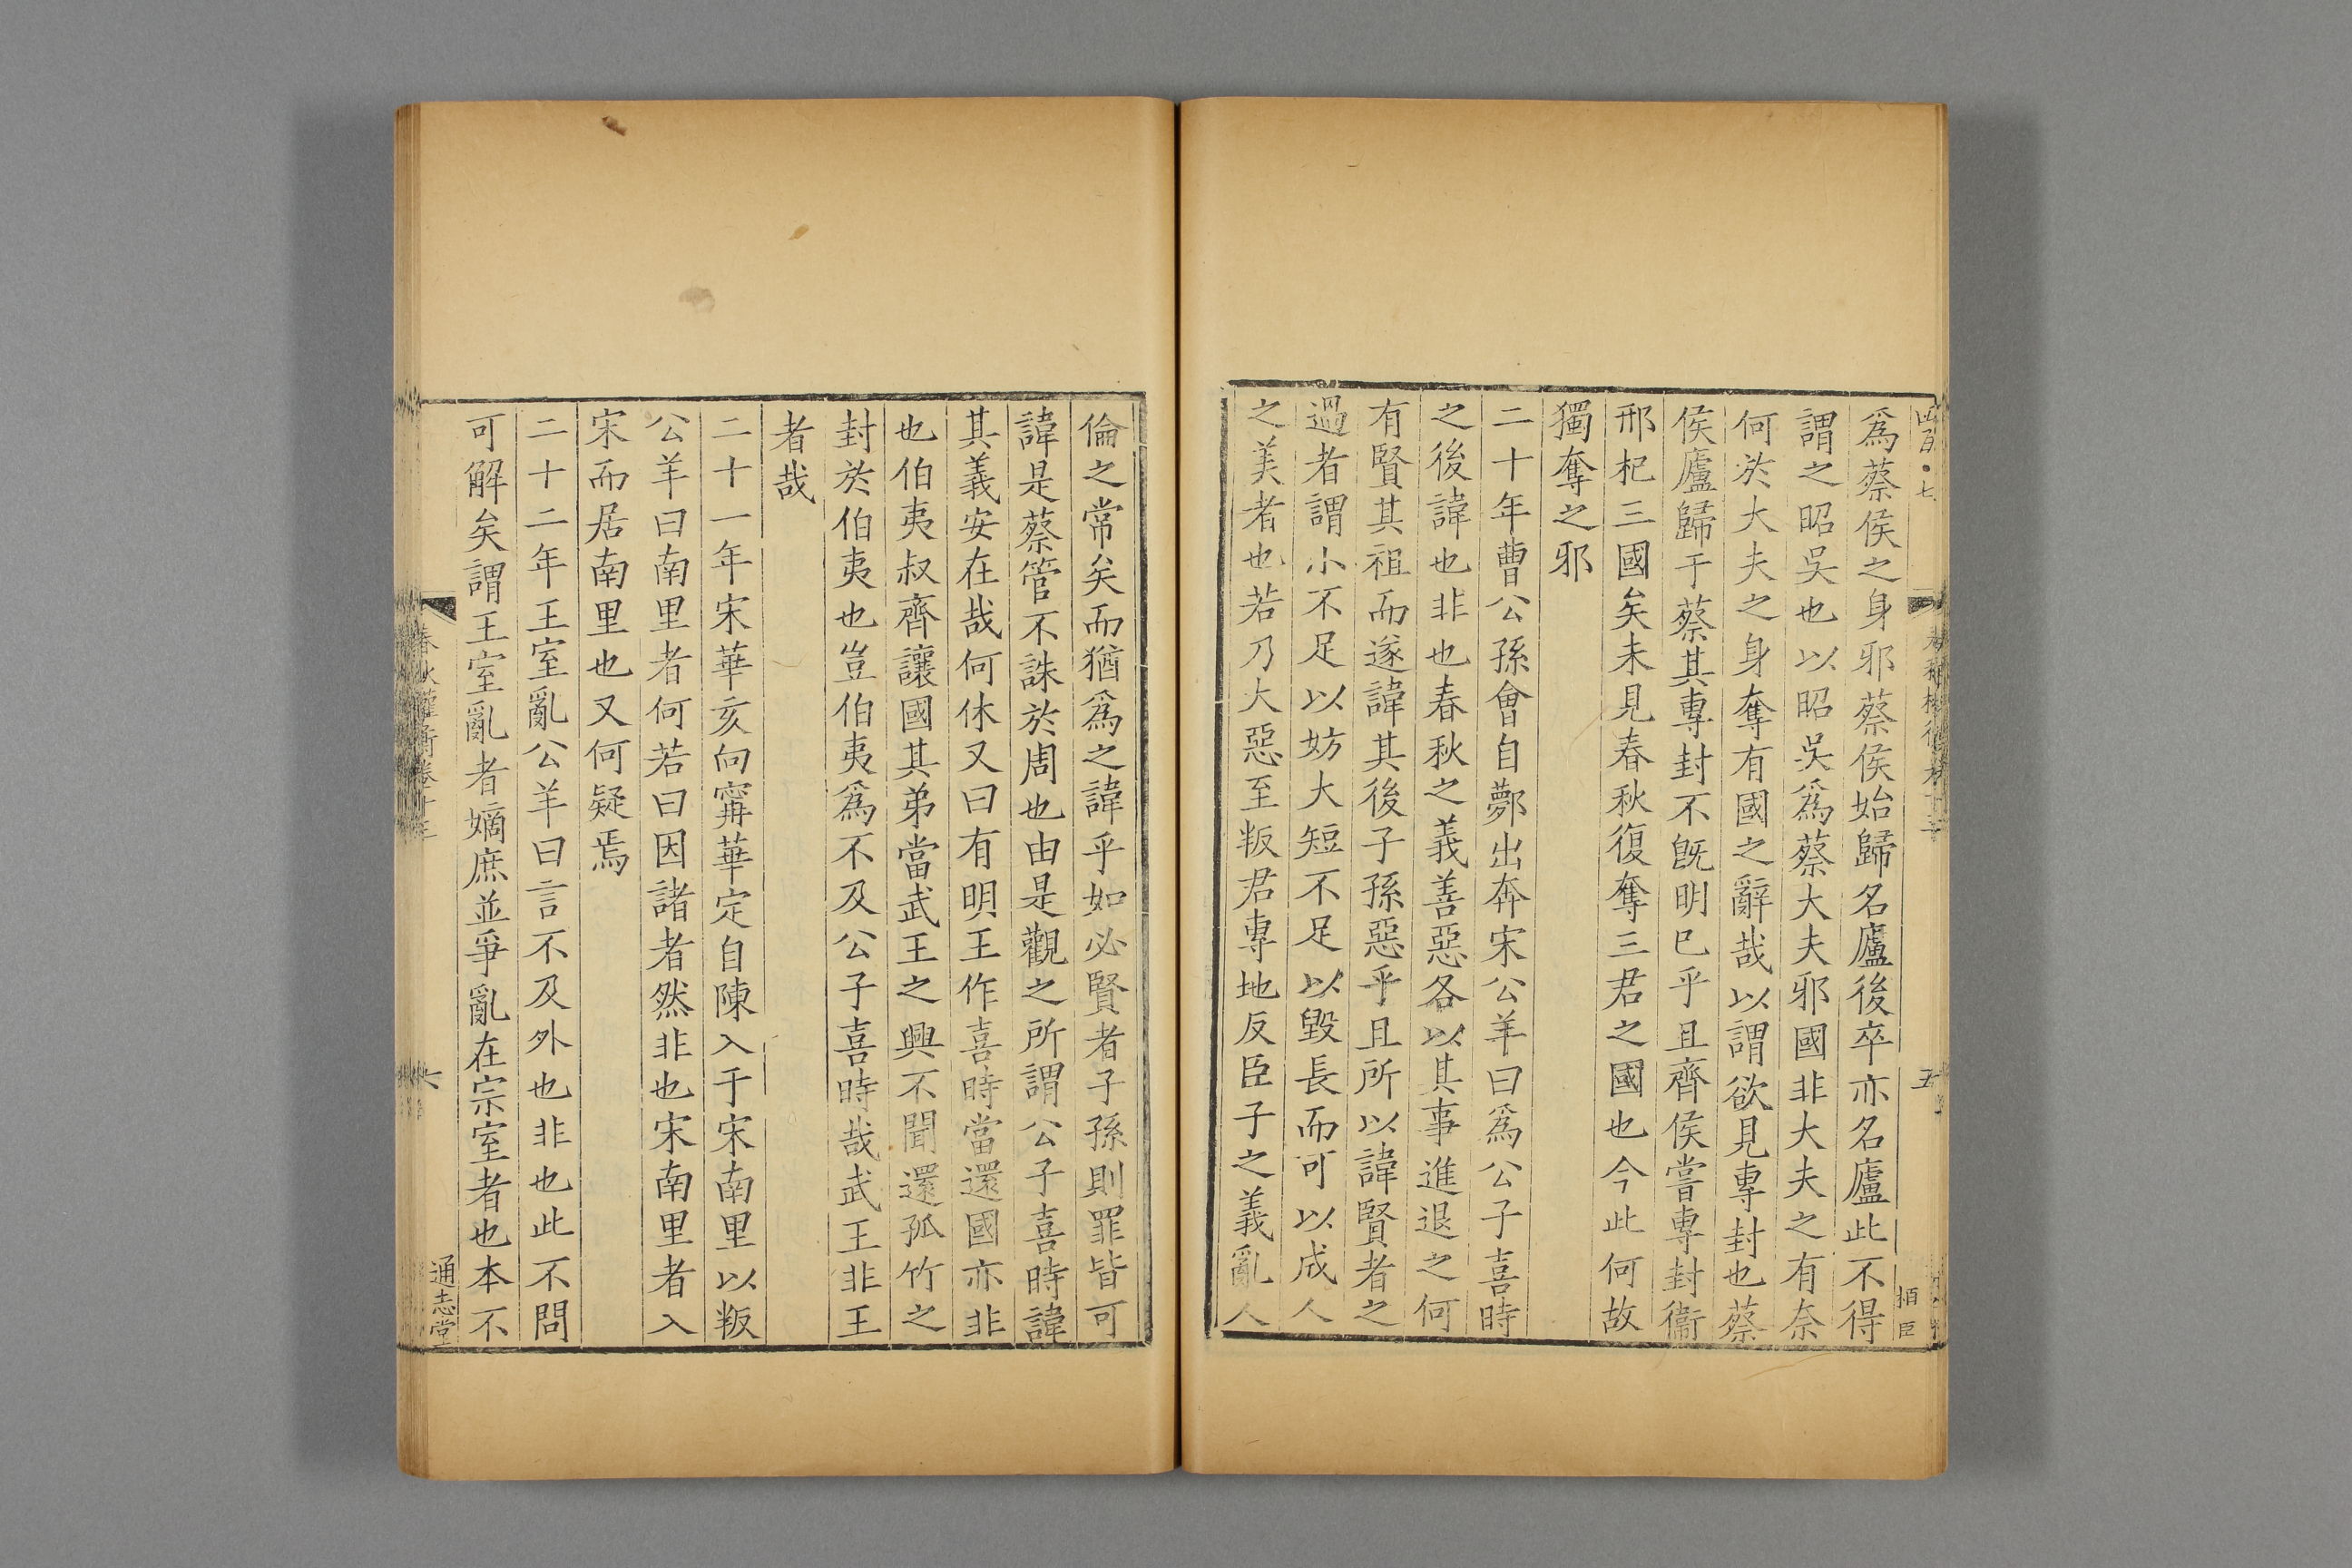 爲蔡侯之身邪蔡侯始歸名廬後卒亦名廬此不得
謂之昭吳也以昭吳爲蔡大夫邪國非大夫之有奈
何於大夫之身奪有國之辭哉以謂欲見專封也蔡
侯廬歸于蔡其專封不旣明巳乎且齊侯嘗專封衞
邢杞三國矣未見春秋復奪三君之國也今此何故
獨奪之邪
二十年曹公孫會自鄸出奔宋公羊曰爲公子喜時
之後諱也非也春秋之義善惡各以其事進退之何
有賢其祖而遂諱其後子孫惡乎且所以諱賢者之
過者謂小不足以妨大短不足以毀長而可以成人
之美者也若乃大惡至叛君專地反臣子之義亂人
倫之常矣而猶爲之諱乎如必賢者子孫則罪皆可
諱是蔡管不誅於周也由是觀之所謂公子喜時諱
其義安在哉何休又曰有明王作喜時當還國亦非
也伯夷叔齊讓國其弟當武王之興不聞還孤竹之
封於伯夷也豈伯夷爲不及公子喜時哉武王非王
者哉
二十一年宋華亥向寗華定自陳入于宋南里以叛
公羊曰南里者何若曰因諸者然非也宋南里者入
宋而居南里也又何疑焉
二十二年王室亂公羊曰言不及外也非也此不問
可解矣謂王室亂者嫡庶並爭亂在宗室者也本不
春秋權衡卷十三
六
通志堂